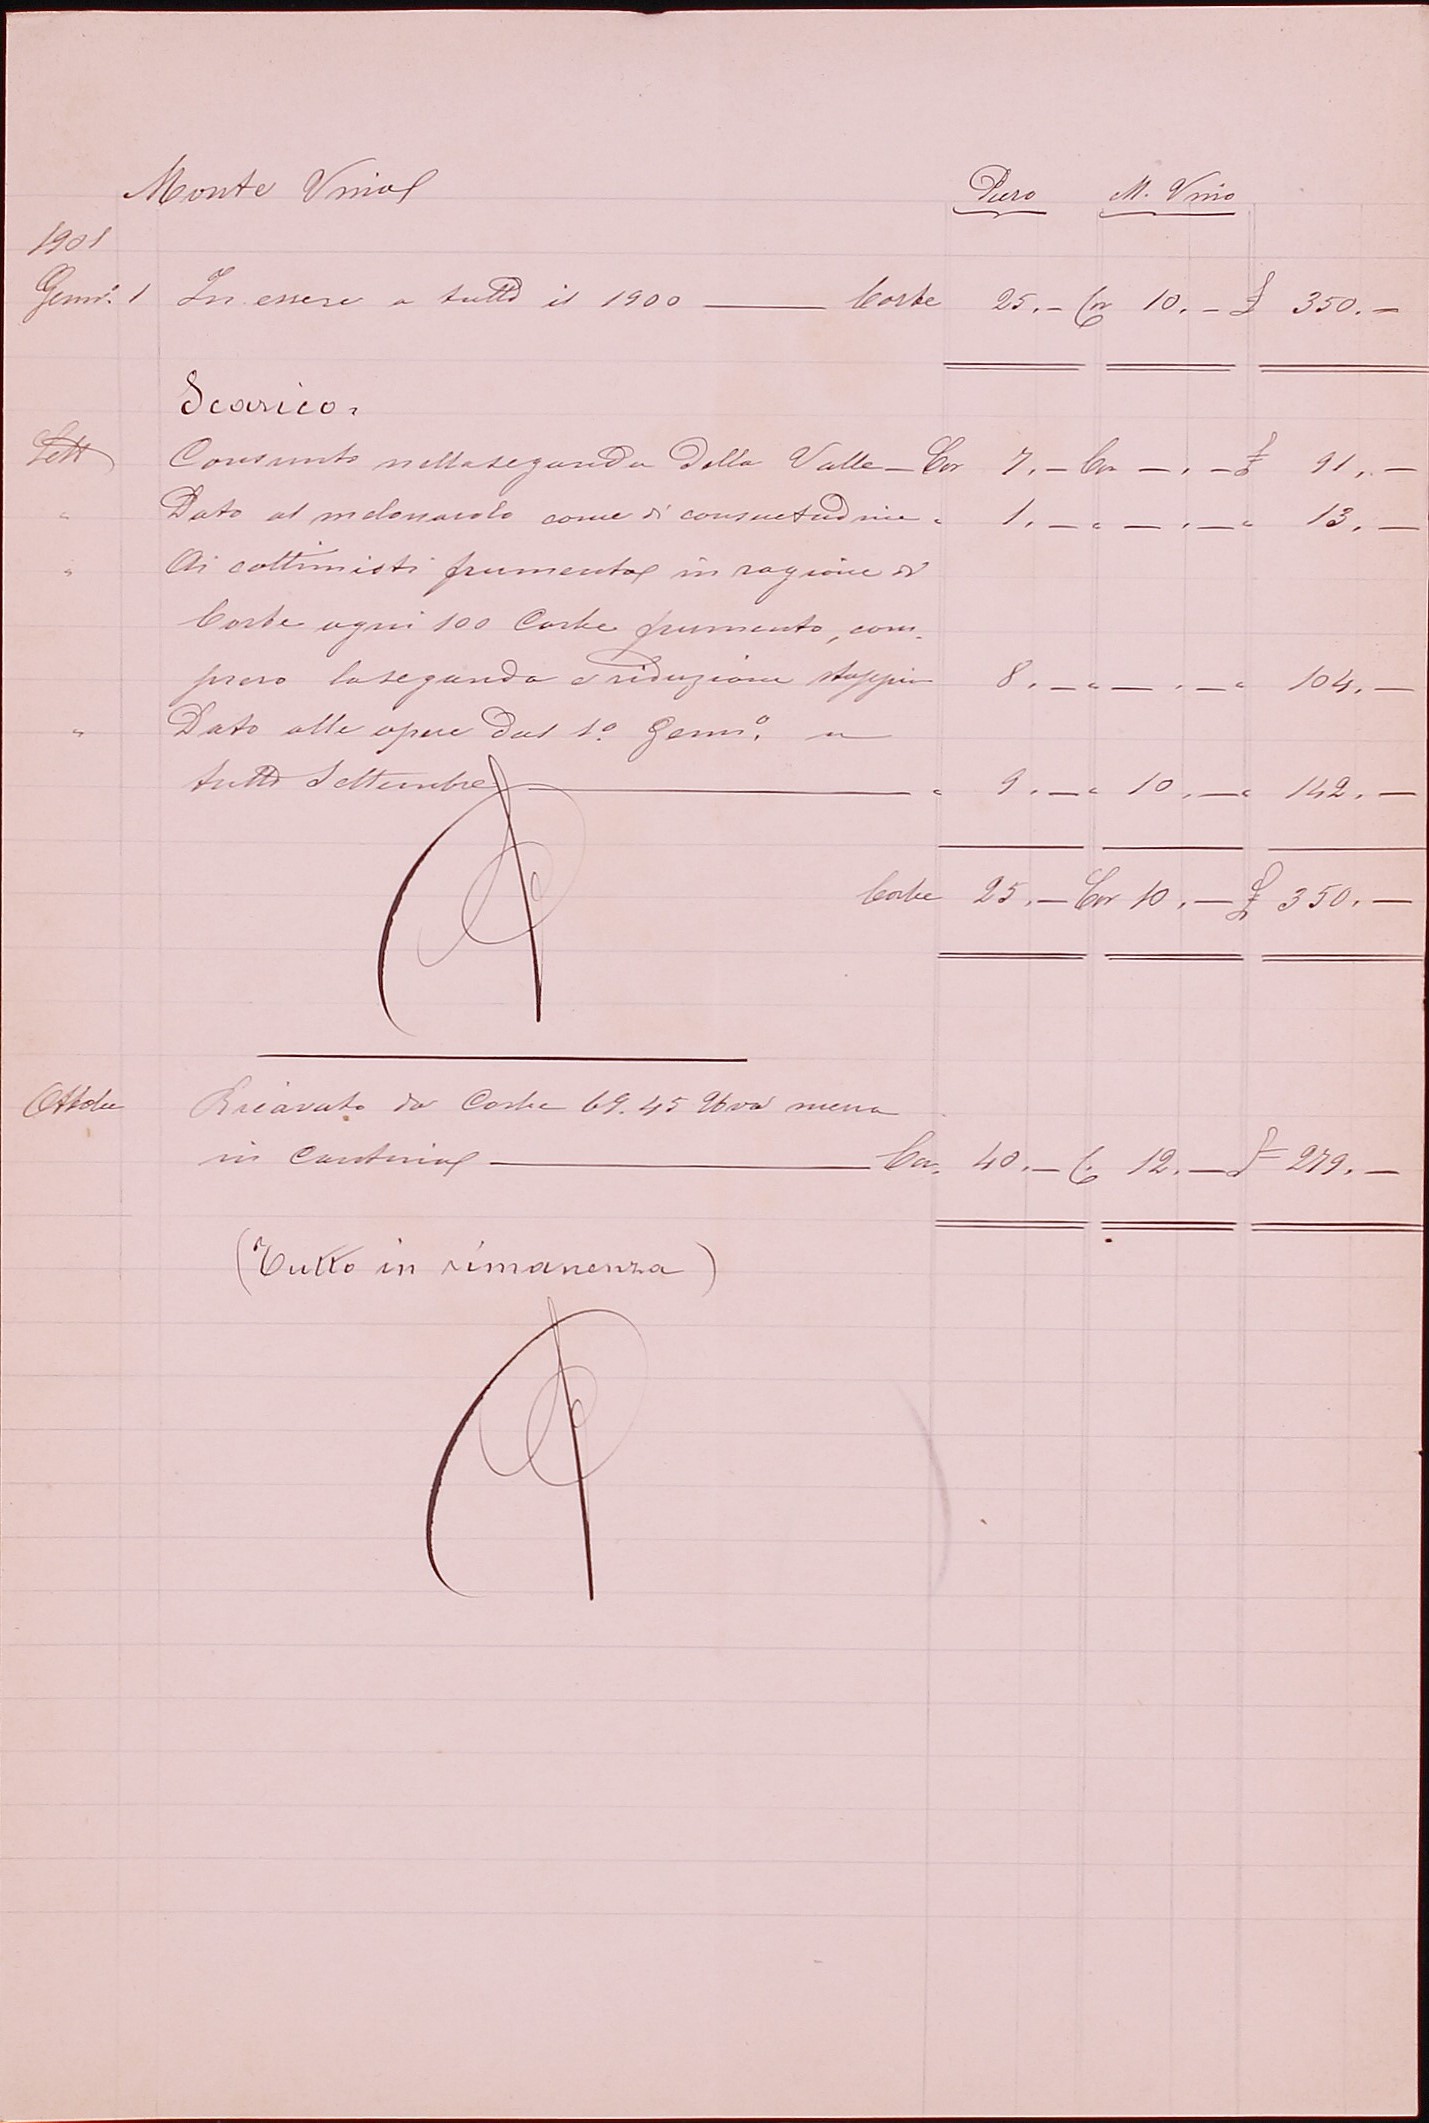 Monte Vino Puro M. Vino
1901
Genn.º 1 In essere a tutto il 1900 — Corbe 25. — Cor 10. — £ 350. —
Scarico.
Sett Consunto nella seganda della Valle — Cor 7. — Cor — . — £ 91. —
" Dato al melonarolo come di consuetudine " 1. — " — . — " 13. —
" Ai cottimisti frumento in ragione di
Corbe ogni 100 Corbe frumento, com-
preso la seganda e riduzione stoppie 8. — " — . — " 104. —
" Dato alle opere dal 1º Genn.º a
tutto Settembre — " 9. — " 10. — " 142. —
Corbe 25. — Cor 10. — £ 350. —
Ottobre Ricavato da Corbe 69.45 Uva messa
in Cantina — Cor. 40. — C. 12. — £ 279. —
(Tutto in rimanenza)